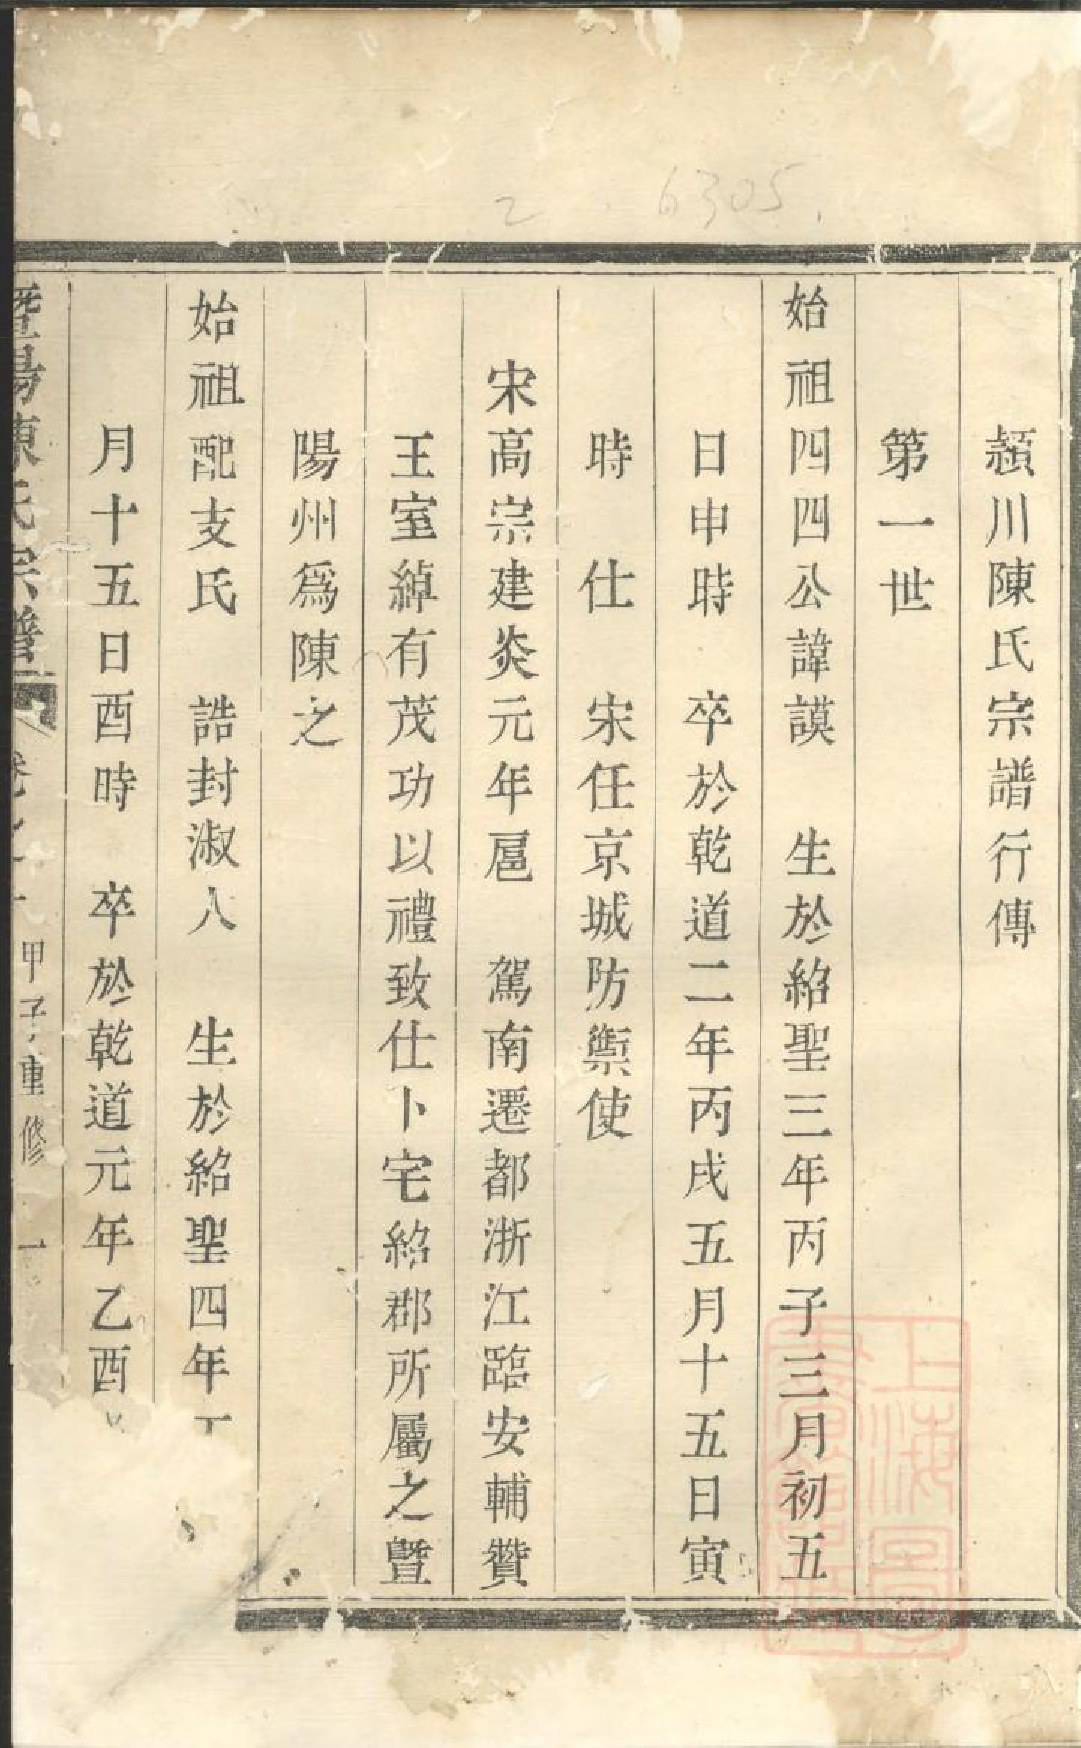 6305
2
潁川陳氏宗譜行傳
第一世
始祖四四公諱謨　生於紹聖三年丙子三月初五
日申時　卒於乾道二年丙戌五月十五日寅
時　仕　宋任京城防禦使
宋高宗建炎元年扈　駕南遷都浙江臨安輔贊
王室綽有茂功以禮致仕卜宅紹郡所屬之暨
陽州爲陳之
始祖配支氏　誥封淑人　生於紹聖四年丁
月十五日酉時　卒於乾道元年乙酉
暨陽陳氏宗譜　卷之　甲子重修　一